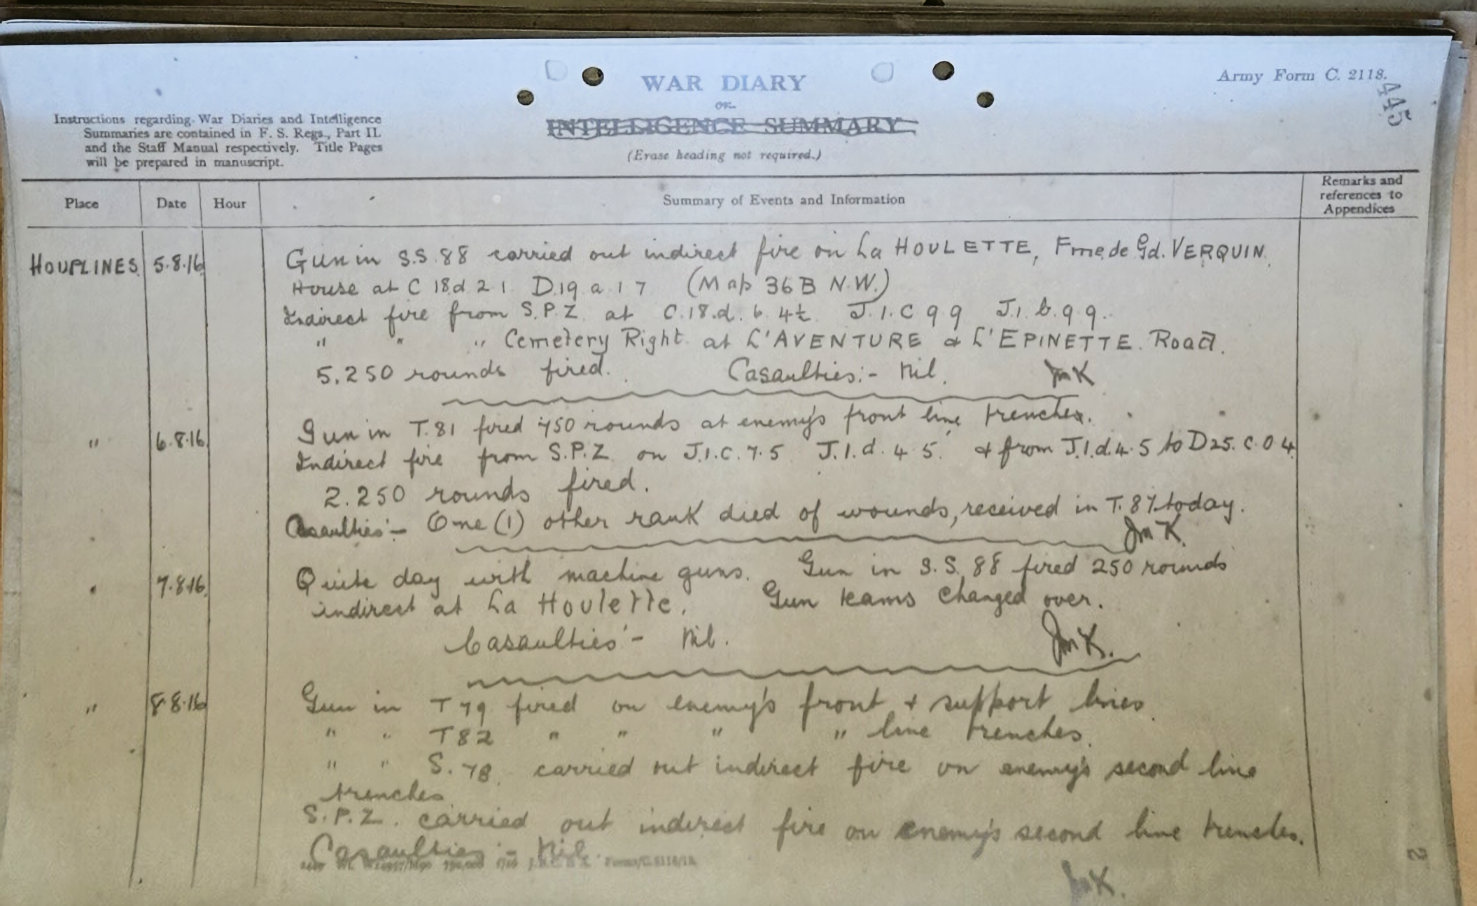 WAR DIARY
or
INTELLIGENCE SUMMARY
(Erase heading not required.)
Army Form C. 2118.
445
Instructions regarding War Diaries and Intelligence
Summaries are contained in F. S. Regs., Part II.
and the Staff Manual respectively. Title Pages
will be prepared in manuscript.
Place Date Hour Summary of Events and Information Remarks and references to Appendices
HOUPLINES 5.8.16 Gun in S.S.88 carried out indirect fire on La HOULETTE, Fme de Gd. VERQUIN
House at C 18d 2 1 D19 a 1 7 (Map 36B N.W.)
Indirect fire from S.P.Z. at C.18.d. 6. 4½ J.1.C 9 9 J.1.b.9 9.
" " " Cemetery Right at L'AVENTURE & L'EPINETTE Road.
5,250 rounds fired. Casaulties:- Nil. JmK
" 6.8.16 Gun in T.81 fired 750 rounds at enemy's front line trenches.
Indirect fire from S.P.Z. on J.1.C.7.5 J.1.d.4.5 & from J.1.d.4.5 to D25.C.0 4
2.250 rounds fired.
Casaulties:- One (1) other rank died of wounds, received in T.87 today.
JmK.
" 7.8.16 Quite day with machine guns. Gun in S.S.88 fired 250 rounds
indirect at La Houlette. Gun teams changed over.
Casaulties:- Nil. JmK.
" 8.8.16 Gun in T79 fired on enemy's front & support lines
" " T82 " " " " line trenches.
" " S.78 carried out indirect fire on enemy's second line
trenches
S.P.Z. carried out indirect fire on enemy's second line trenches.
Casaulties:- Nil
JmK.
2